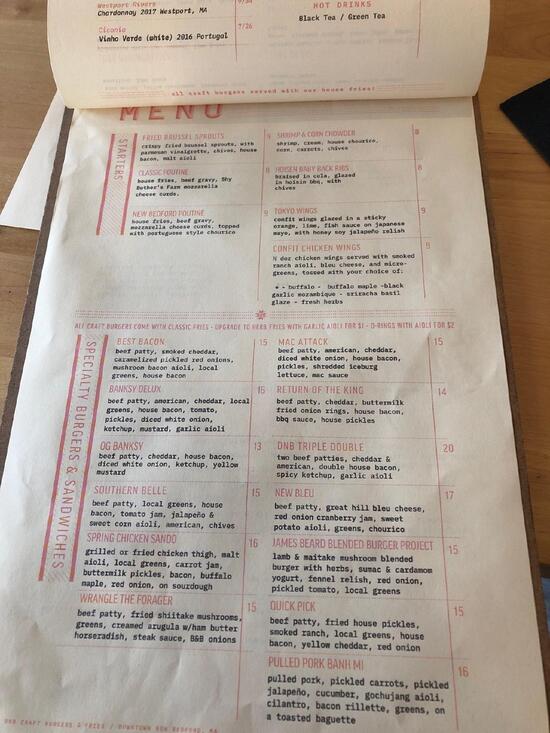 Westport Rivers
Chardonnay 2017 Westport, MA
9/34
Ciconia
Vinho Verde (white) 2016 Portugal
7/26
HOT DRINKS
Black Tea / Green Tea
all craft burgers served with our house fries!
MENU
STARTERS
FRIED BRUSSEL SPROUTS
9
crispy fried brussel sprouts, with
parmesan vinaigrette, chives, house
bacon, malt aioli
CLASSIC POUTINE
8
house fries, beef gravy, Shy
Brother's Farm mozzarella
cheese curds.
NEW BEDFORD POUTINE
9
house fries, beef gravy,
mozzarella cheese curds, topped
with portuguese style chourico
SHRIMP & CORN CHOWDER
8
shrimp, cream, house chourico,
corn, carrots, chives
HOISEN BABY BACK RIBS
8
braised in cola, glazed
in hoisin bbq, with
chives
TOKYO WINGS
9
confit wings glazed in a sticky
orange, lime, fish sauce on japanese
mayo, with honey soy jalapeño relish
CONFIT CHICKEN WINGS
9
½ doz chicken wings served with smoked
ranch aioli, bleu cheese, and micro-
greens, tossed with your choice of:
- buffalo - buffalo maple -black
garlic mozambique - sriracha basil
glaze - fresh herbs
ALL CRAFT BURGERS COME WITH CLASSIC FRIES - UPGRADE TO HERB FRIES WITH GARLIC AIOLI FOR $1 - O-RINGS WITH AIOLI FOR $2
SPECIALTY BURGERS & SANDWICHES
BEST BACON
15
beef patty, smoked cheddar,
caramelized pickled red onions,
mushroom bacon aioli, local
greens, house bacon
BANKSY DELUX
16
beef patty, american, cheddar, local
greens, house bacon, tomato,
pickles, diced white onion,
ketchup, mustard, garlic aioli
OG BANKSY
13
beef patty, cheddar, house bacon,
diced white onion, ketchup, yellow
mustard
SOUTHERN BELLE
15
beef patty, local greens, house
bacon, tomato jam, jalapeño &
sweet corn aioli, american, chives
SPRING CHICKEN SANDO
16
grilled or fried chicken thigh, malt
aioli, local greens, carrot jam,
buttermilk pickles, bacon, buffalo
maple, red onion, on sourdough
WRANGLE THE FORAGER
15
beef patty, fried shiitake mushrooms,
greens, creamed arugula w/ham butter
horseradish, steak sauce, B&B onions
MAC ATTACK
15
beef patty, american, cheddar,
diced white onion, house bacon,
pickles, shredded iceburg
lettuce, mac sauce
RETURN OF THE KING
14
beef patty, cheddar, buttermilk
fried onion rings, house bacon,
bbq sauce, house pickles
DNB TRIPLE DOUBLE
20
two beef patties, cheddar &
american, double house bacon,
spicy ketchup, garlic aioli
NEW BLEU
17
beef patty, great hill bleu cheese,
red onion cranberry jam, sweet
potato aioli, greens, chourico
JAMES BEARD BLENDED BURGER PROJECT
15
lamb & maitake mushroom blended
burger with herbs, sumac & cardamom
yogurt, fennel relish, red onion,
pickled tomato, local greens
QUICK PICK
15
beef patty, fried house pickles,
smoked ranch, local greens, house
bacon, yellow cheddar, red onion
PULLED PORK BANH MI
16
pulled pork, pickled carrots, pickled
jalapeño, cucumber, gochujang aioli,
cilantro, bacon rillette, greens, on
a toasted baguette
DNB CRAFT BURGERS & FRIES / DOWNTOWN NEW BEDFORD, MA